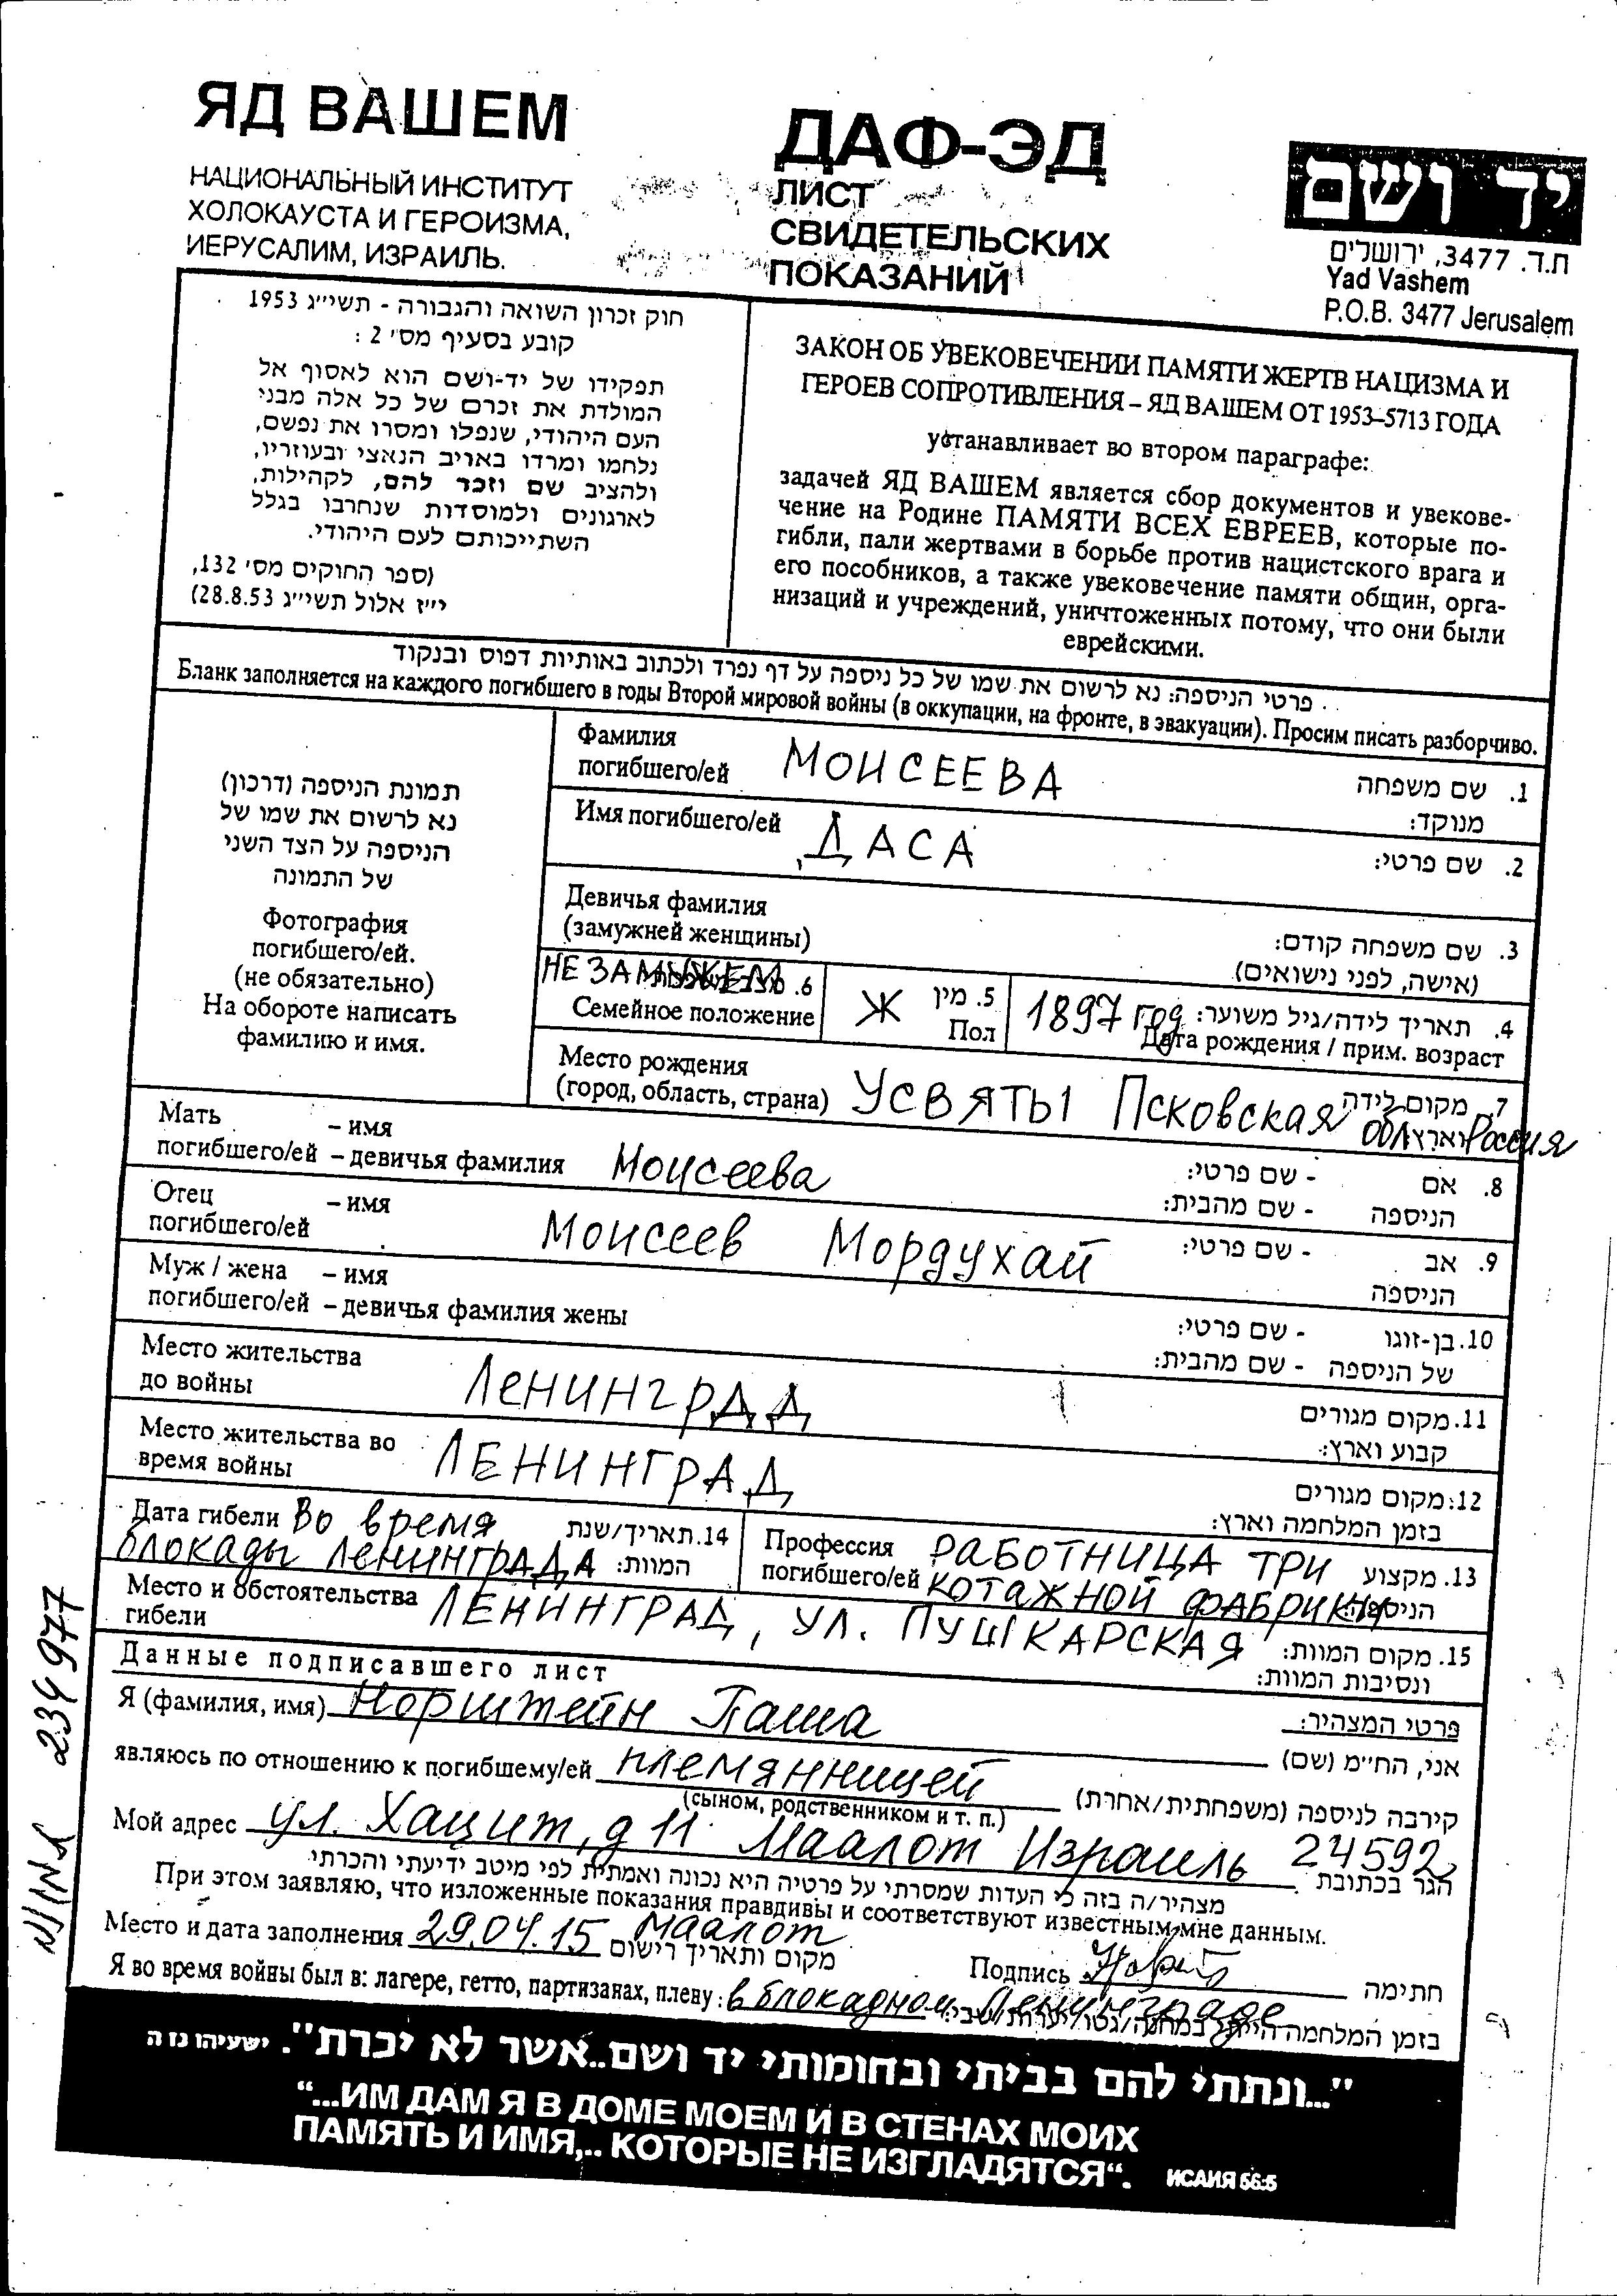 ЯД ВАШЕМ
НАЦИОНАЛЬНЫЙ ИНСТИТУТ
ХОЛОКАУСТА И ГЕРОИЗМА,
ИЕРУСАЛИМ, ИЗРАИЛЬ.
ДАФ-ЭД
ЛИСТ
СВИДЕТЕЛЬСКИХ
ПОКАЗАНИЙ
יד ושם
ת.ד. 3477, ירושלים
Yad Vashem
P.O.B. 3477 Jerusalem
חוק זכרון השואה והגבורה - תשי״ג 1953
קובע בסעיף מס׳ 2 :
תפקידו של יד-ושם הוא לאסוף אל
המולדת את זכרם של כל אלה מבני
העם היהודי, שנפלו ומסרו את נפשם,
נלחמו ומרדו באויב הנאצי ובעוזריו,
ולהציב שם וזכר להם, לקהילות,
לארגונים ולמוסדות שנחרבו בגלל
השתייכותם לעם היהודי.
(ספר החוקים מס׳ 132,
י״ז אלול תשי״ג 28.8.53)
ЗАКОН ОБ УВЕКОВЕЧЕНИИ ПАМЯТИ ЖЕРТВ НАЦИЗМА И
ГЕРОЕВ СОПРОТИВЛЕНИЯ – ЯД ВАШЕМ ОТ 1953–5713 ГОДА
устанавливает во втором параграфе:
задачей ЯД ВАШЕМ является сбор документов и увекове-
чение на Родине ПАМЯТИ ВСЕХ ЕВРЕЕВ, которые по-
гибли, пали жертвами в борьбе против нацистского врага и
его пособников, а также увековечение памяти общин, орга-
низаций и учреждений, уничтоженных потому, что они были
еврейскими.
פרטי הניספה: נא לרשום את שמו של כל ניספה על דף נפרד ולכתוב באותיות דפוס ובנקוד
Бланк заполняется на каждого погибшего в годы Второй мировой войны (в оккупации, на фронте, в эвакуации). Просим писать разборчиво.
תמונת הניספה (דרכון)
נא לרשום את שמו של
הניספה על הצד השני
של התמונה
Фотография
погибшего/ей.
(не обязательно)
На обороте написать
фамилию и имя.
Фамилия
погибшего/ей МОИСЕЕВА
1. שם משפחה
מנוקד:
Имя погибшего/ей ДАСА
2. שם פרטי:
Девичья фамилия
(замужней женщины)
3. שם משפחה קודם:
(אישה, לפני נישואים)
НЕ ЗАМУЖЕМ 6.
Семейное положение
Ж 5. מין
Пол
1897 год 4. תאריך לידה/גיל משוער:
Дата рождения / прим. возраст
Место рождения
(город, область, страна) УСВЯТЫ Псковская обл. Россия
7. מקום לידה
וארץ:
Мать – имя
погибшего/ей – девичья фамилия Моисеева
8. אם - שם פרטי:
הניספה - שם מהבית:
Отец – имя
погибшего/ей Моисеев Мордухай
9. אב - שם פרטי:
הניספה
Муж / жена – имя
погибшего/ей – девичья фамилия жены
10. בן-זוגו - שם פרטי:
של הניספה - שם מהבית:
Место жительства
до войны ЛЕНИНГРАД
11. מקום מגורים
קבוע וארץ:
Место жительства во
время войны ЛЕНИНГРАД
12. מקום מגורים
בזמן המלחמה וארץ:
Дата гибели Во время
блокады ЛЕНИНГРАДА
14. תאריך/שנת
המוות:
Профессия РАБОТНИЦА ТРИ
погибшего/ей КОТАЖНОЙ ФАБРИКИ
13. מקצוע
הניספה:
Место и обстоятельства
гибели ЛЕНИНГРАД, УЛ. ПУШКАРСКАЯ
15. מקום המוות:
ונסיבות המוות:
Данные подписавшего лист
פרטי המצהיר:
Я (фамилия, имя) Норштейн Паша
אני, החי״מ (שם)
являюсь по отношению к погибшему/ей племянницей
(сыном, родственником и т. п.)
קירבה לניספה (משפחתית/אחרת)
Мой адрес ул. Хацит, д 11 Маалот Израиль 24592
הגר בכתובת
מצהיר/ה בזה כי העדות שמסרתי על פרטיה היא נכונה ואמתית לפי מיטב ידיעתי והכרתי.
При этом заявляю, что изложенные показания правдивы и соответствуют известным мне данным.
Место и дата заполнения 29.04.15 Маалот
מקום ותאריך רישום
Подпись
חתימה
Я во время войны был в: лагере, гетто, партизанах, плену: в блокадном Ленинграде
בזמן המלחמה הייתי במחנה/גטו/יערות/שבי:
"...ונתתי להם בביתי ובחומותי יד ושם..אשר לא יכרת". ישעיהו נו ה
“...ИМ ДАМ Я В ДОМЕ МОЕМ И В СТЕНАХ МОИХ
ПАМЯТЬ И ИМЯ,.. КОТОРЫЕ НЕ ИЗГЛАДЯТСЯ“. ИСАИЯ 56:5
234977